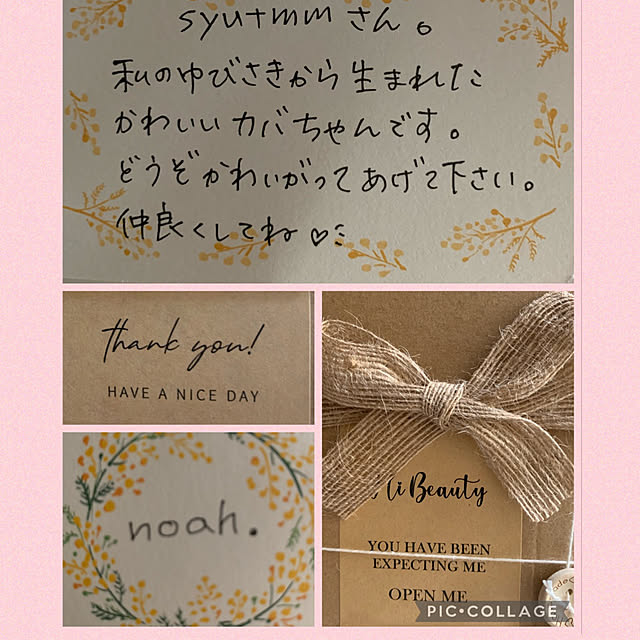 syutmmさん。
私のゆびさきから生まれた
かわいいカバちゃんです。
どうぞかわいがってあげて下さい。
仲良くしてね♡
thank you!
HAVE A NICE DAY
noah.
Hi Beauty
YOU HAVE BEEN
EXPECTING ME
OPEN ME
PIC•COLLAGE